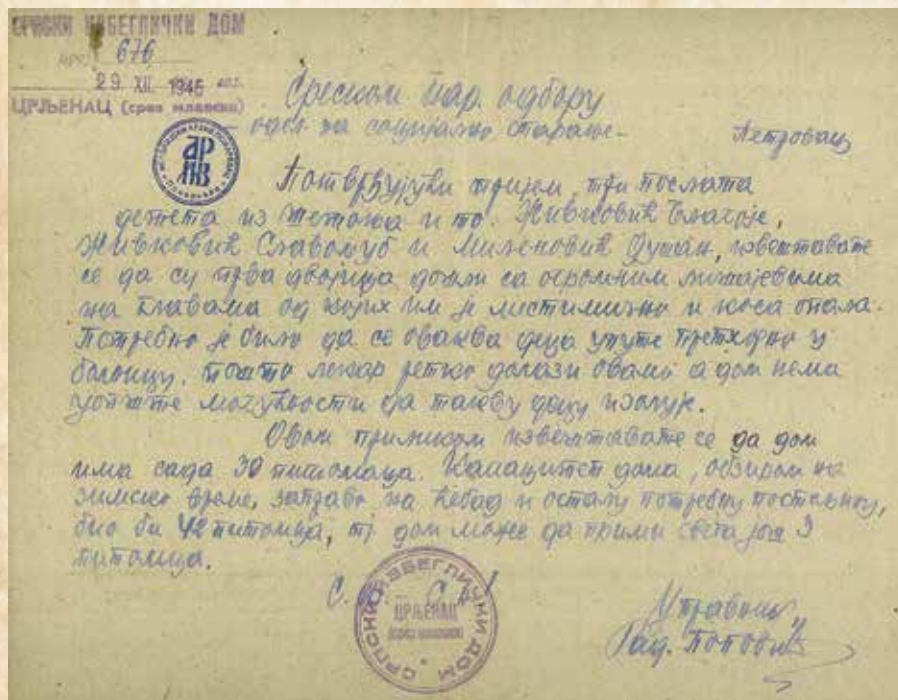 СРПСКИ ИЗБЕГЛИЧКИ ДОМ
БРОЈ 676
29 XII. 1945 год.
ЦРЉЕНАЦ (срез млавски)
Среском нар. одбору
одсек за социјално старање-
Петровац
Потврђујући пријем, три послата
детета из Шетоња и то: Живковић Благоје,
Живковић Славољуб и Миленовић Душан, извештавате
се да су прва двојица дошли са огромним лишајевима
на главама од којих им је местимично и коса опала.
Потребно је било да се оваква деца упуте претходно у
болницу. Пошто лекар ретко долази овамо а дом нема
уопште могућности да такву децу изолује.
Овом приликом извештавате се да дом
има сада 30 питомаца. Капацитет дома, обзиром на
зимско време, затраво на ћебад и осталу потребну постељину,
био би 42 питомца, тј дом може да прими свега још
питомца.
С. Ф. - С. Н!
СРПСКИ ИЗБЕГЛИЧКИ ДОМ
ЦРЉЕНАЦ
(срез млавски)
Управник,
Рад. Поповић